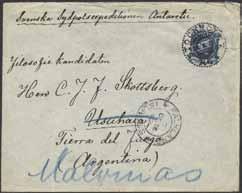 Svenska Sydpolsexpeditionen Antarctic.
Filosofie kandidaten
Herr C. J. F. Skottsberg.
Ushuaia
Tierra del Fuego
(Argentina)
Malvinas